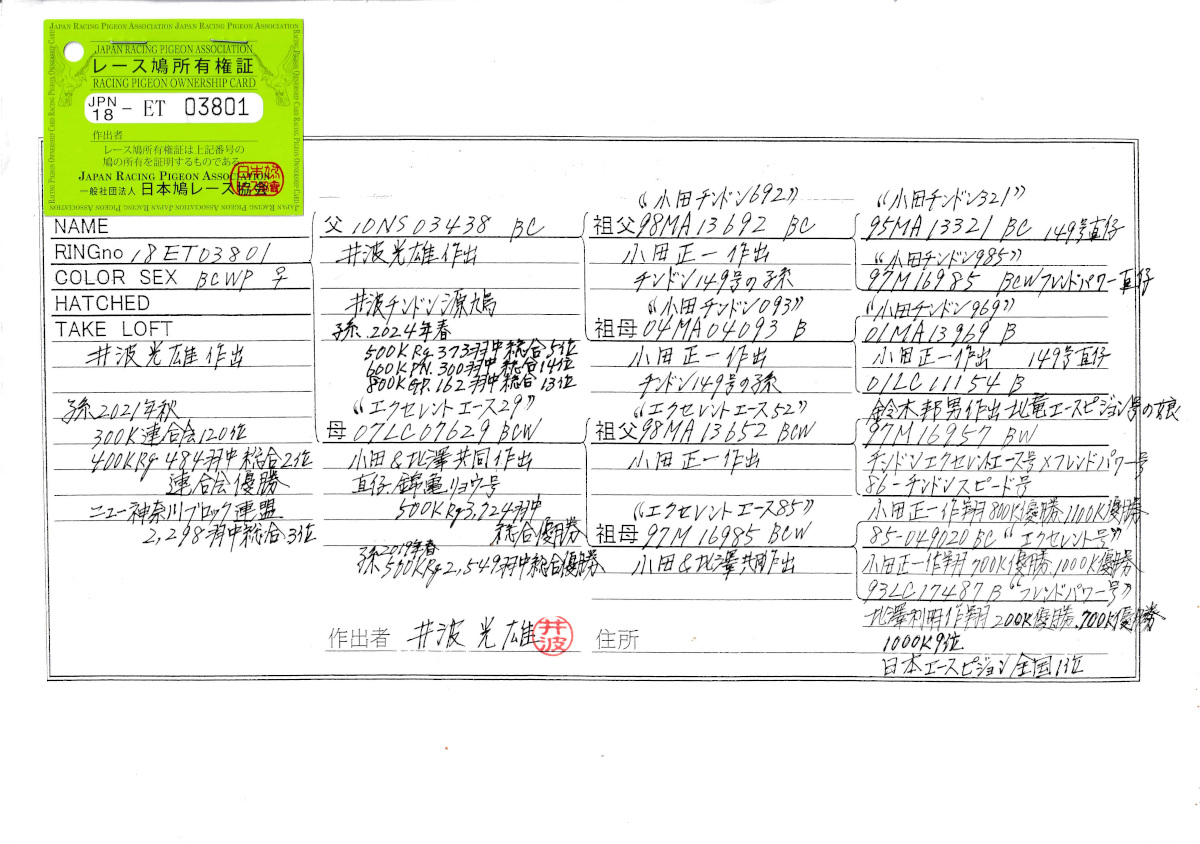 JAPAN RACING PIGEON ASSOCIATION JAPAN RACING PIGEON ASSOCIATION
JAPAN RACING PIGEON ASSOCIATION
レース鳩所有権証
RACING PIGEON OWNERSHIP CARD
JPN 18 - ET 03801
作出者
レース鳩所有権証は上記番号の
鳩の所有を証明するものである。
JAPAN RACING PIGEON ASSOCIATION
一般社団法人 日本鳩レース協会
NAME
RINGno 18ET03801
COLOR SEX BCWP ♀
HATCHED
TAKE LOFT
井波光雄作出
孫2021年秋
300K連合会120位
400KRg 484羽中総合2位
連合会優勝
ニュー神奈川ブロック連盟
2,298羽中総合3位
父 10NS03438 BC
井波光雄作出
井波チンドン源九烏
孫.2024年春
500KRg.373羽中総合5位
600KPN.300羽中総合14位
800KGP.162羽中総合13位
“エクセレントエース29”
母 07LC07629 BCW
小田&北澤共同作出
直仔.錦竜リョウ号
500KRg3,724羽中
総合優勝
孫2019年春
500KRg2,549羽中総合優勝
作出者 井波光雄 井波
“小田チンドン692”
祖父98MA13692 BC
小田正一作出
チンドン149号の孫
“小田チンドン093”
祖母04MA04093 B
小田正一作出
チンドン149号の孫
“エクセレントエース52”
祖父98MA13652 BCW
小田正一作出
“エクセレントエース85”
祖母97M16985 BCW
小田&北澤共同作出
住所
“小田チンドン321”
95MA13321 BC 149号直仔
“小田チンドン985”
97M16985 BCWフレンドパワー直仔
“小田チンドン969”
01MA13969 B
小田正一作出 149号直仔
01LC11154 B
鈴木邦男作出北竜エースピジョン号の娘
97M16957 BW
チンドンエクセレントエース号×フレンドパワー号
86-チンドンスピード号
小田正一作翔800K優勝.1100K優勝
85-049020 BC “エクセレント号”
小田正一作翔700K優勝.1000K優勝
93LC17487 B “フレンドパワー号”
北澤利用作翔200K優勝.700K優勝
1000K9位
日本エースピジョン全国1位